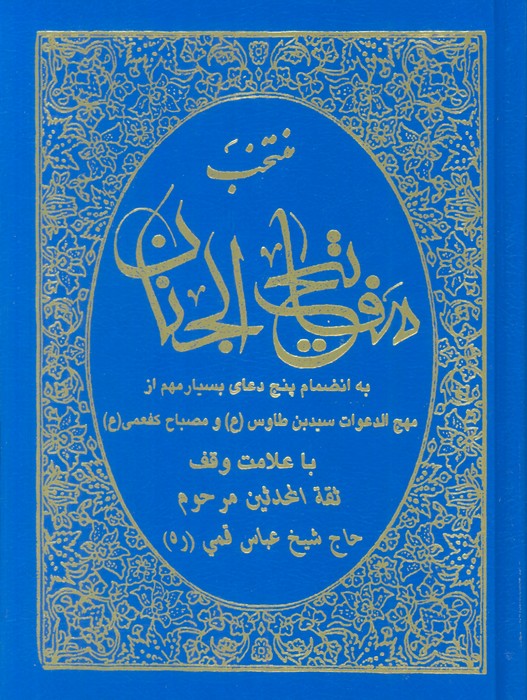 منتخب
مفاتیح الجنان
به انضمام پنج دعای بسیار مهم از
مهج الدعوات سیدبن طاوس (ع) و مصباح کفعمی (ع)
با علامت وقف
ثقة المحدثین مرحوم
حاج شیخ عباس قمي (ره)